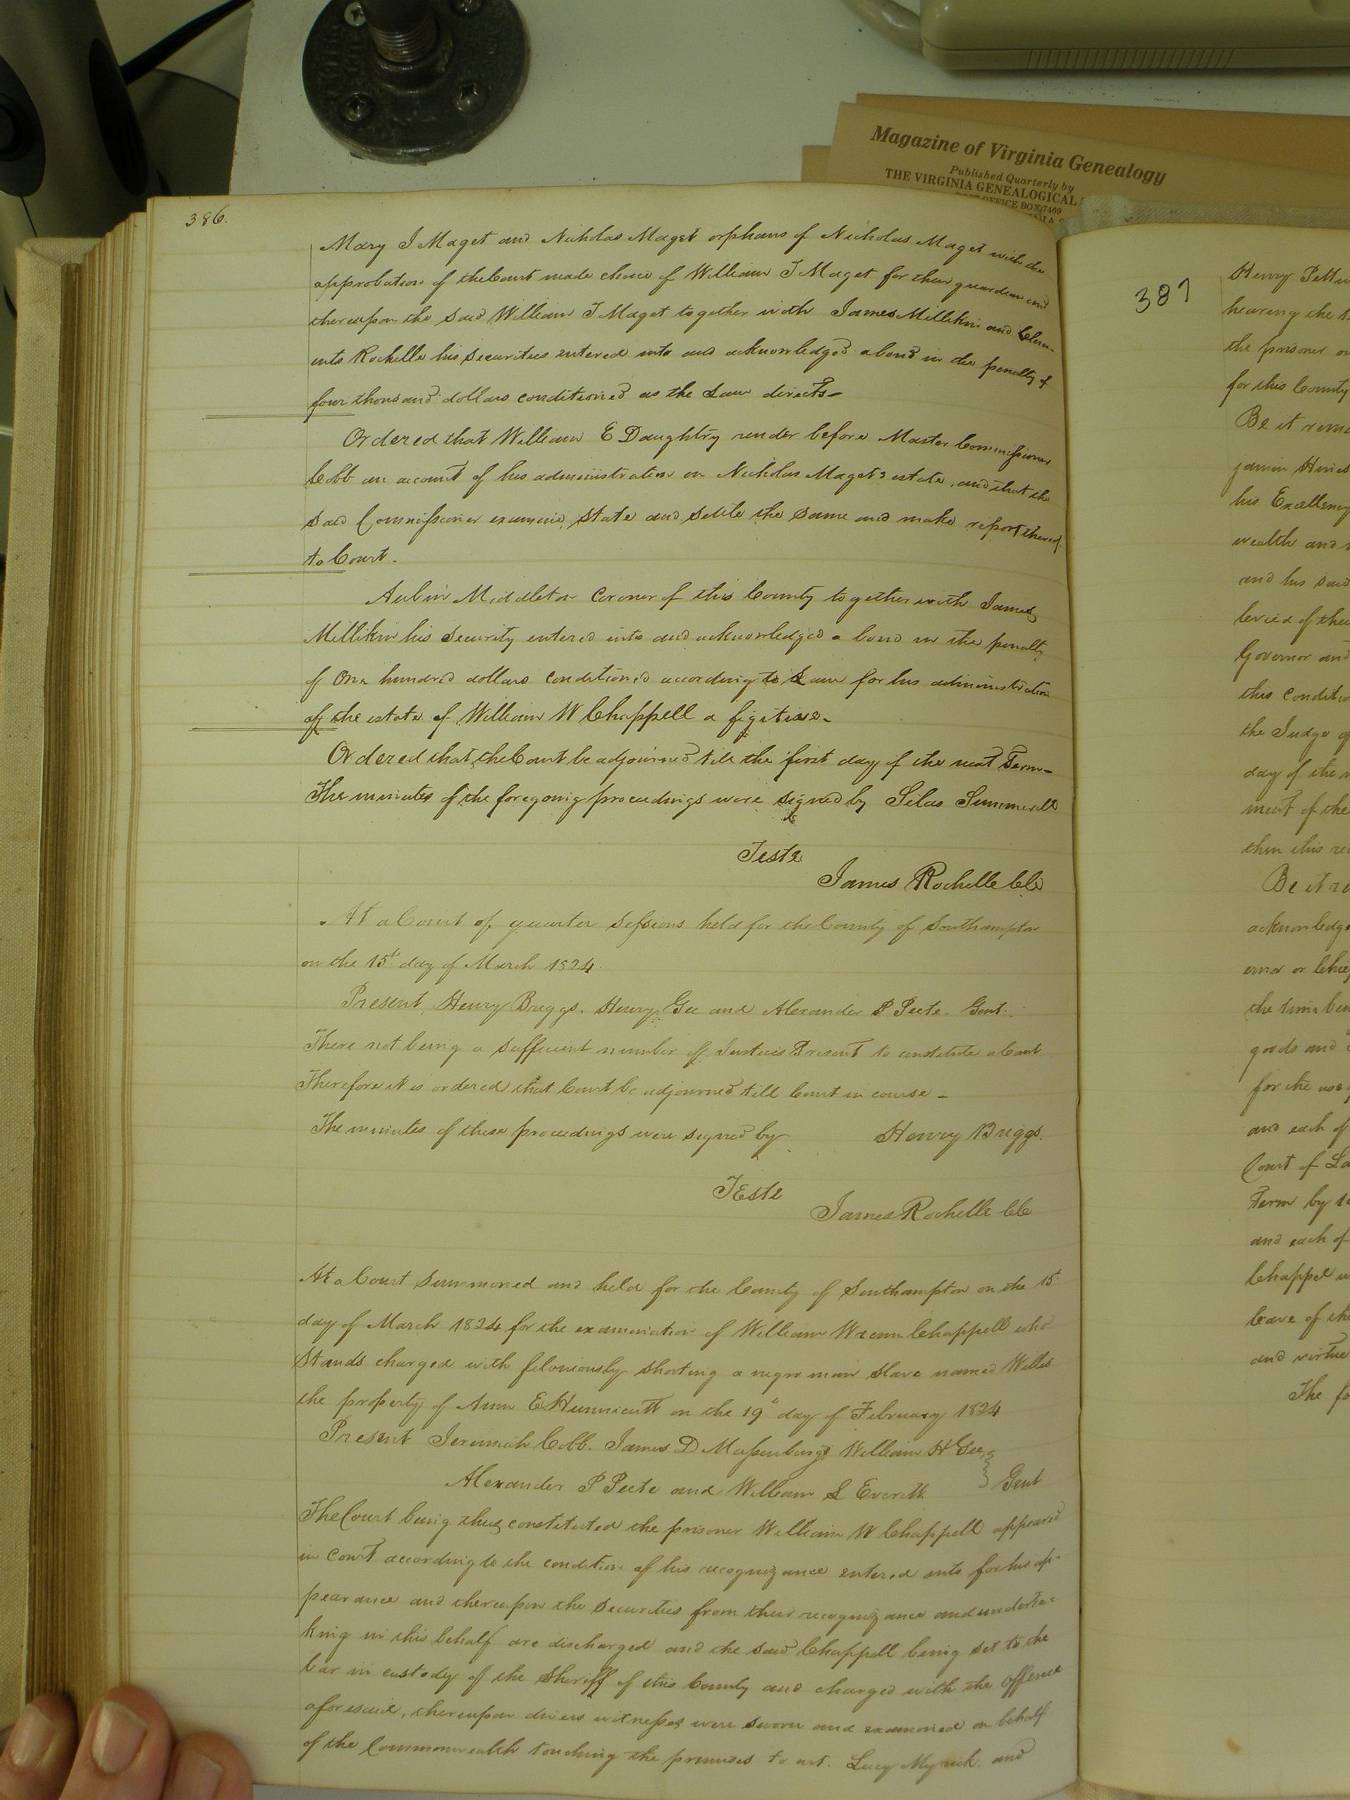 Magazine of Virginia Genealogy
Published Quarterly by
THE VIRGINIA GENEALOGICAL
OFFICE BOX 7469
386.
Mary I Maget and Nicholas Maget orphans of Nicholas Maget with the
approbation of the Court made choice of William T Maget for their guardian and
thereupon the said William T Maget together with James Millikin and Clem-
ints Rochelle his securities entered into and acknowledged a bond in the penalty of
four thousand dollars conditioned as the Law directs-
Ordered that William E Daughtry render before Master Commissioner
Cobb an account of his administration on Nicholas Maget's estate, and that the
said Commissioner examine, state and settle the same and make report thereof
to Court.
Aubin Middleton Coroner of this County together with James
Millikin his security entered into and acknowledged a bond in the penalty
of One hundred dollars conditioned according to Law for his administration
of the estate of William W Chappell a figitive-
Ordered that the Court be adjourned till the first day of the next Term-
The minutes of the foregoing proceedings were signed by Silas Summerell
Teste
James Rochelle CC
At a Court of quarter Sessions held for the County of Southampton
on the 15t day of March 1824.
Present, Henry Briggs. Henry Gee and Alexander P Peete. Gent.
There not being a sufficient number of Justices Present to constitute a Court
Therefore it is ordered that Court be adjourned till Court in course-
The minutes of these proceedings were signed by Henry Briggs.
Teste
James Rochelle CC
At a Court Summoned and held for the County of Southampton on the 15t
day of March 1824 for the examination of William Wrenn Chappell who
Stands charged with feloniously shooting a negro man slave named Willis
the property of Ann E Hunnicutt on the 19th day of February 1824
Present Jeremiah Cobb. James D Massenburg William H Gee,
Alexander P Peete and William S Everett Gent
The Court being thus constituted the prisoner William W Chappell appeared
in Court according to the condition of his recognizance entered into for his ap-
pearance and thereupon the securities from their recognizance and underta-
king in this behalf are discharged and the said Chappell being set to the
bar in custody of the Sheriff of this County and charged with the offence
aforesaid, thereupon divers witnesses were sworn and examined on behalf
of the Commonwealth touching the premises to wit. Lucy Myrick and
387
Henry
hearing the
the prisoner
for this County
Be it
his Excellency
wealth and
and his said
levied of their
Governor and
this condition
the Judge of
day of the
ment of the
then this
Be it
acknowledge
the time
goods and
for the use
and each of
Court of
Term by
and each of
Chappel
leave of the
and virtue
The